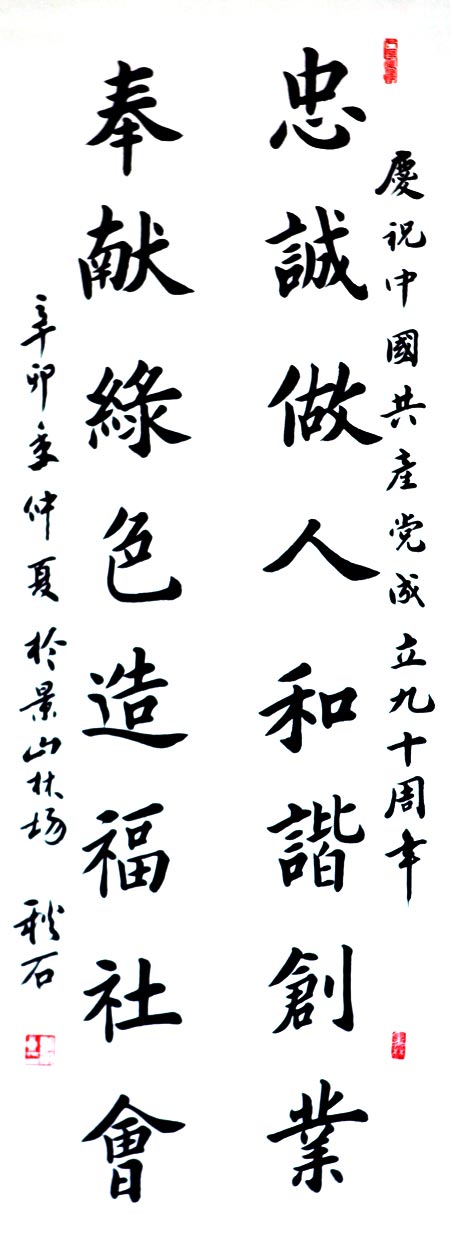 慶祝中國共產党成立九十周年
忠誠做人和諧創業
奉献綠色造福社會
辛卯秊仲夏於景山林场 秋石